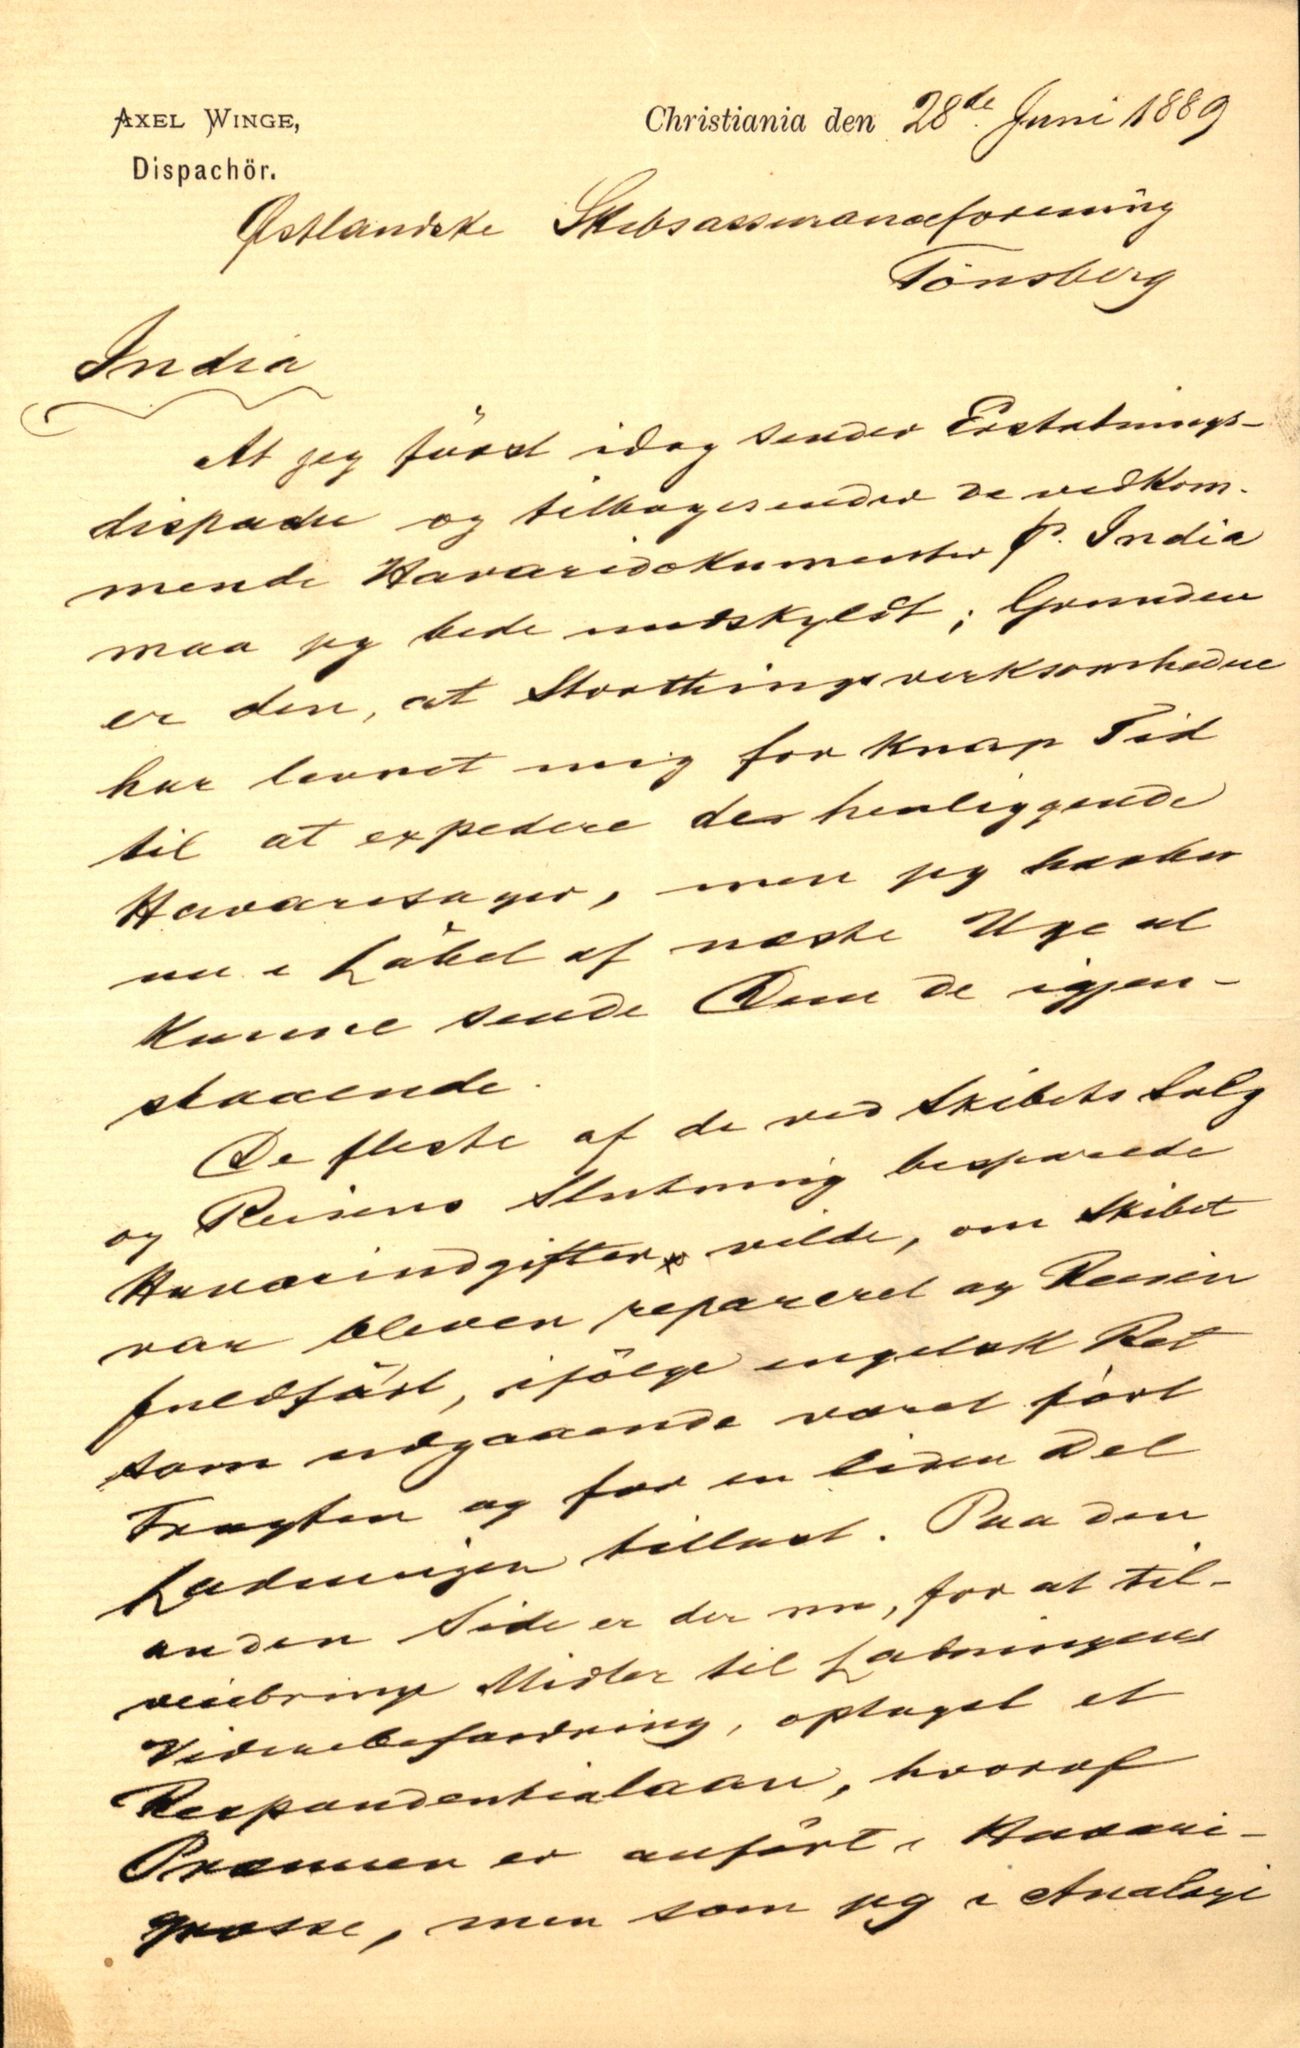 AXEL WINGE,
Dispachör.
Christiania den 28de Juni 1889
Østlandske Skibsassuranceforening
Tönsberg
India
At jeg först idag sender Erstatnings-
dispache og tilbagesender de vedkom-
mende Havaridokumenter P. India
maa jeg bede undskyldt; Grunden
er den, at Storthingsvirksomheden
har levnet mig for knap Tid
til at expedere de henliggende
Havarisager, men jeg haaber
nu i Löbet af næste Uge at
kunne sende Dem de igjen-
staaende.
De fleste af de ved Skibets Salg
og Reisens Slutning besparede
Havariudgifter vilde, om Skibet
var bleven repareret og Reisen
fuldfört, ifölge engelsk Ret
som udgaaende været fört
Fragten og for en liden Del
Ladningen tillast. Paa den
anden Side er der nu, for at til-
veiebringe Midler til Ladningens
Viderebefordring, optaget et
Respondentialaan, hvoraf
Præmien er anfört i Havari-
grosse, men som jeg i Analogi